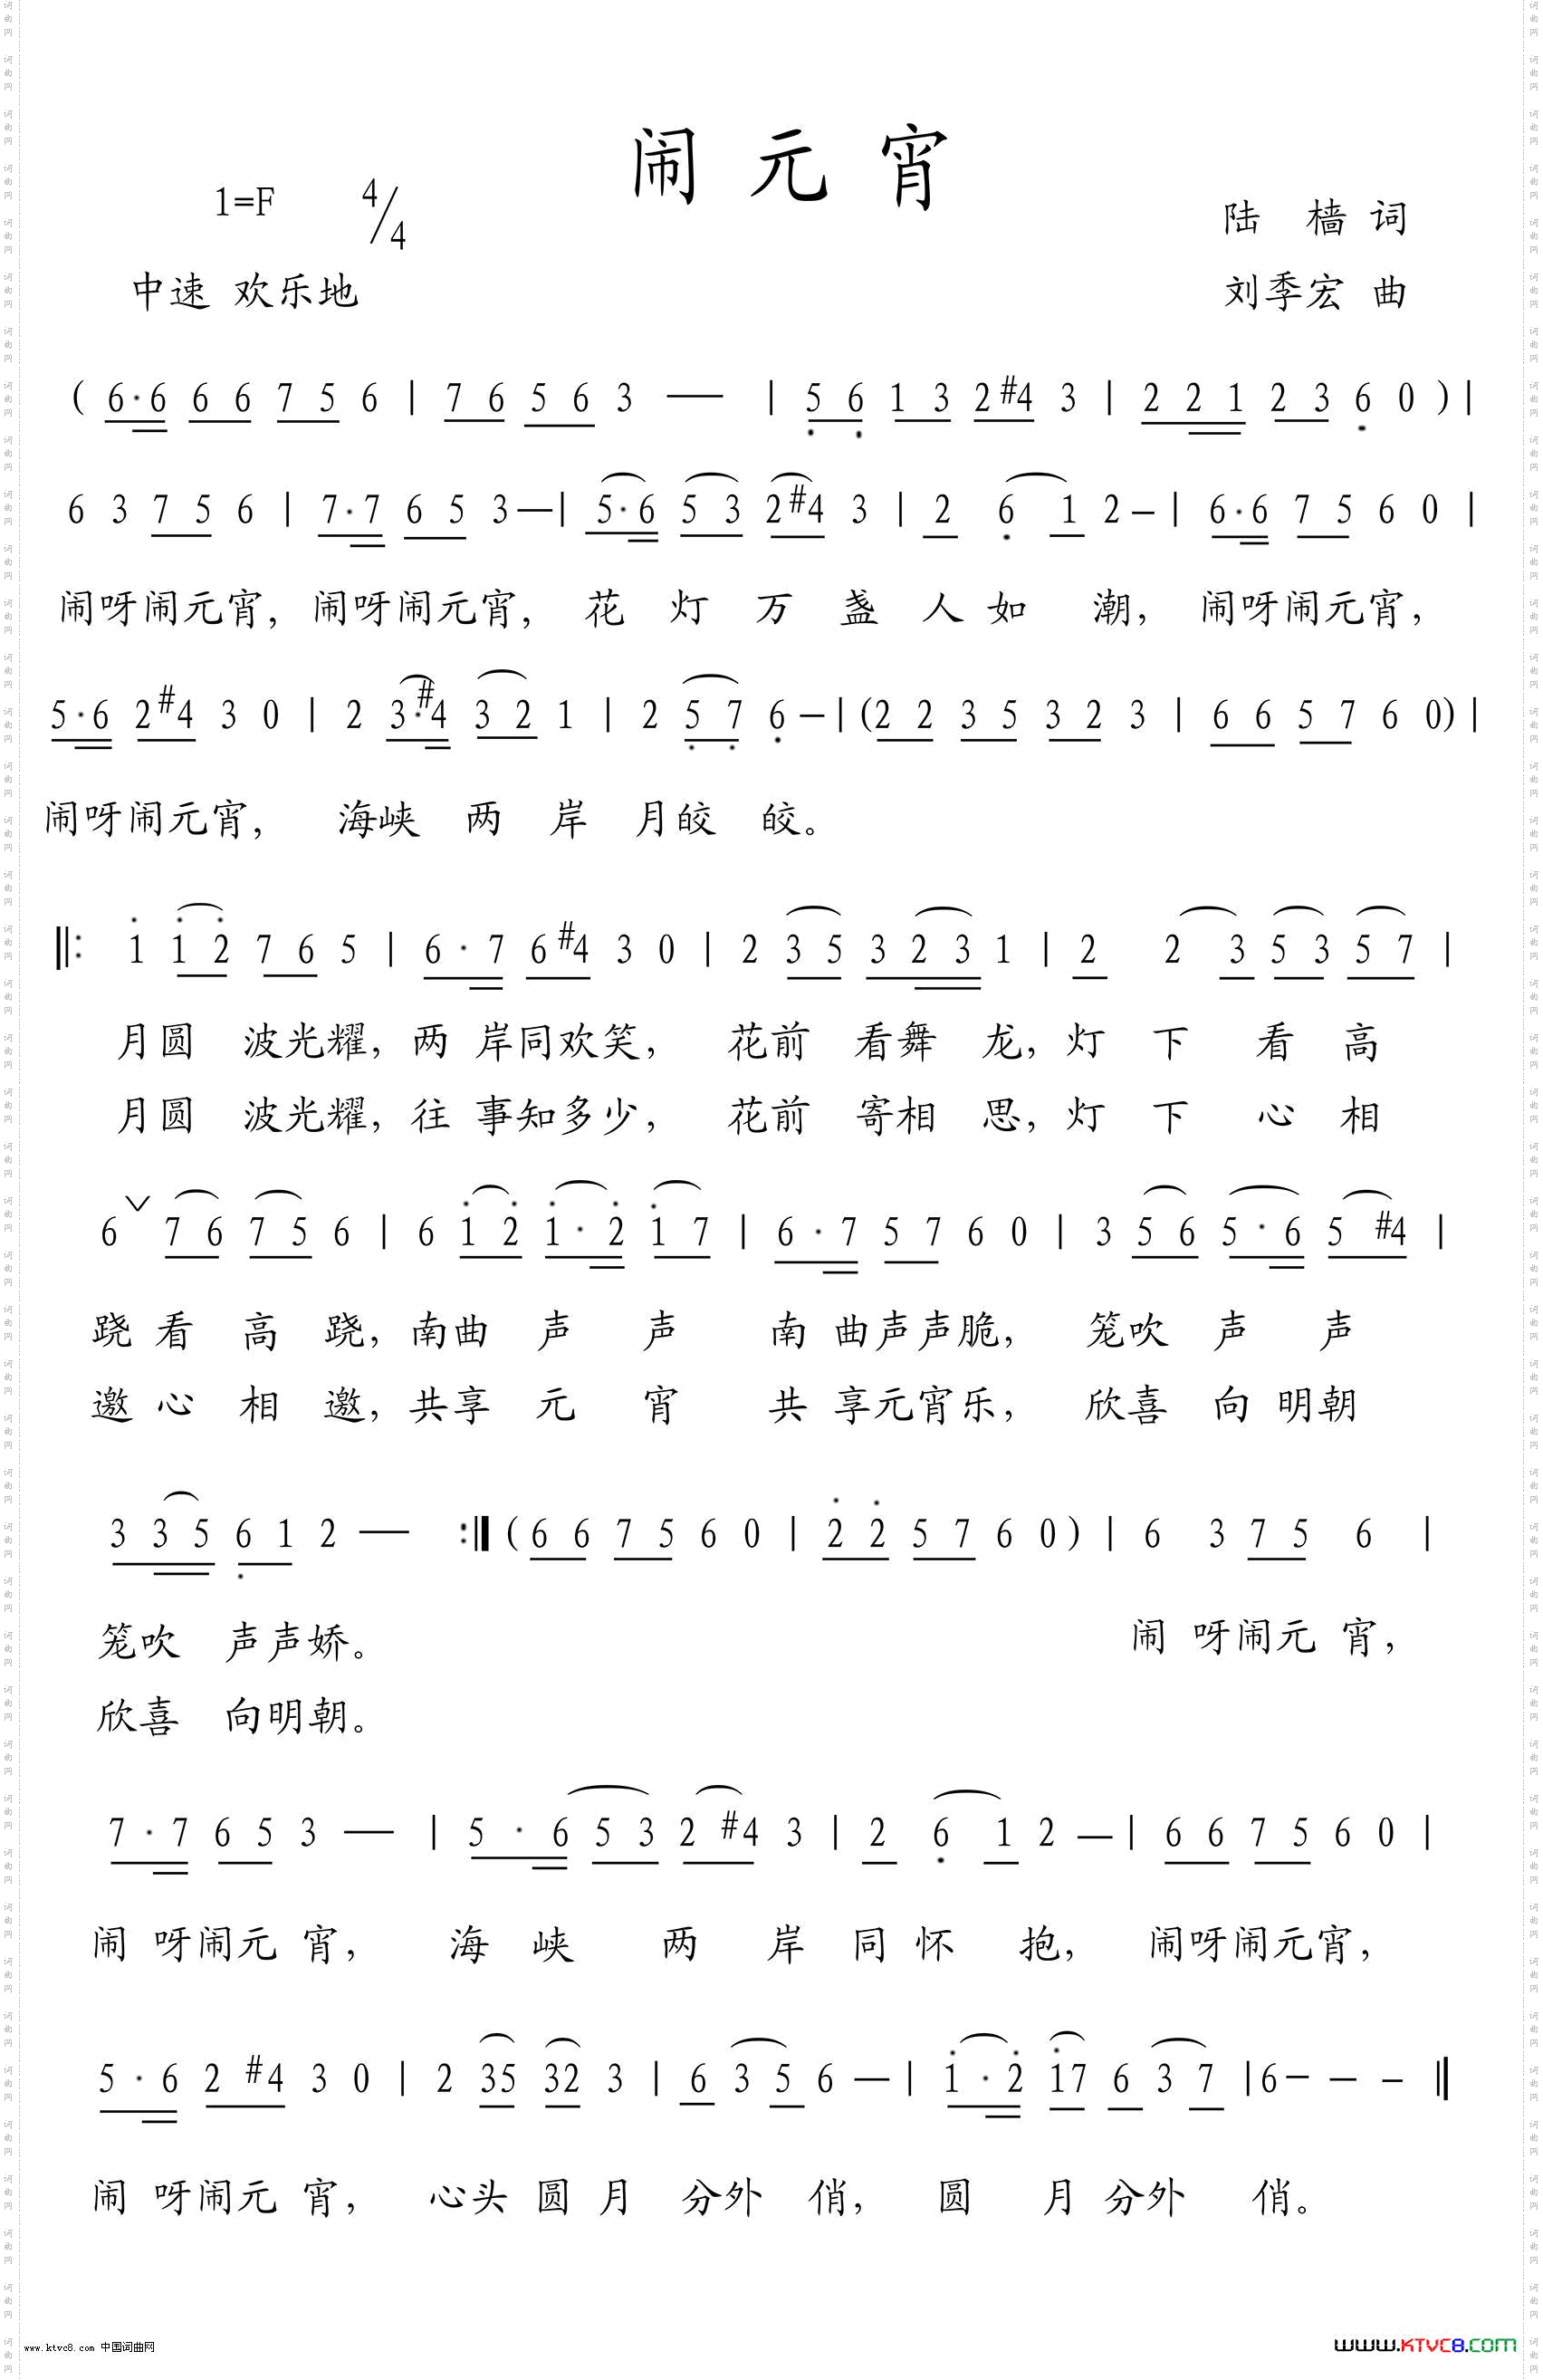 闹元宵
1=F 4/4
陆 樯 词
中速 欢乐地
刘季宏 曲
( 6·6 6 6 7 5 6 | 7 6 5 6 3 — | 5 6 1 3 2 #4 3 | 2 2 1 2 3 6 0 ) |
6 3 7 5 6 | 7·7 6 5 3 — | 5·6 5 3 2 #4 3 | 2 6 1 2 — | 6·6 7 5 6 0 |
闹呀闹元宵, 闹呀闹元宵, 花 灯 万 盏 人 如 潮, 闹呀闹元宵,
5·6 2 #4 3 0 | 2 3·#4 3 2 1 | 2 5 7 6 — | (2 2 3 5 3 2 3 | 6 6 5 7 6 0) |
闹呀闹元宵, 海峡 两 岸 月皎 皎。
‖: 1 1 2 7 6 5 | 6·7 6 #4 3 0 | 2 3 5 3 2 3 1 | 2 2 3 5 3 5 7 |
月圆 波光耀, 两 岸同欢笑, 花前 看舞 龙, 灯 下 看 高
月圆 波光耀, 往 事知多少, 花前 寄相 思, 灯 下 心 相
6 ∨ 7 6 7 5 6 | 6 1 2 1·2 1 7 | 6·7 5 7 6 0 | 3 5 6 5·6 5 #4 |
跷 看 高 跷, 南曲 声 声 南 曲声声脆, 笼吹 声 声
邀 心 相 邀, 共享 元 宵 共 享元宵乐, 欣喜 向 明朝
3 3 5 6 1 2 — :‖ ( 6 6 7 5 6 0 | 2 2 5 7 6 0 ) | 6 3 7 5 6 |
笼吹 声声娇。 闹 呀闹元 宵,
欣喜 向明朝。
7·7 6 5 3 — | 5·6 5 3 2 #4 3 | 2 6 1 2 — | 6 6 7 5 6 0 |
闹 呀闹元 宵, 海 峡 两 岸 同 怀 抱, 闹呀闹元宵,
5·6 2 #4 3 0 | 2 35 32 3 | 6 3 5 6 — | 1·2 17 6 3 7 | 6 — — — ‖
闹 呀闹元 宵, 心头 圆 月 分外 俏, 圆 月 分外 俏。
www.ktvc8.com 中国词曲网
www.KTVC8.COM